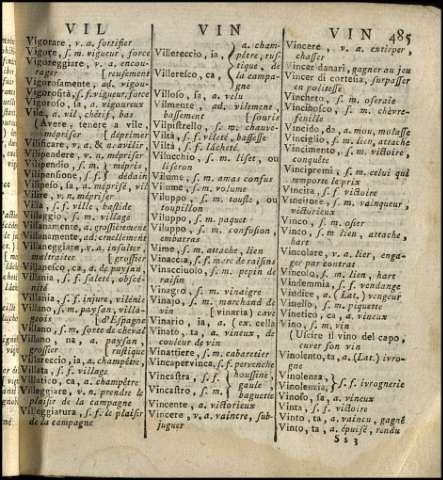 VIL
VIN
VIN 485
Vigorare, v. a. fortifier
Vigore, s. m. vigueur, force
Vigoreggiare, v. a. encou-
rager [reusement
Vigorosamente, ad. vigou-
Vigorosità, s. f. vigueur, force
Vigoroso, sa, a. vigoureux
Vile, a. vil, chétif, bas
(Avere, tenere a vile,
mépriser [déprimer
Vilificare, v. a. & n. avilir
Vilipendere, v. a. mépriser
Vilipendio, s. m. mépris,
Vilipensione, s. f. dédain
Vilipeso, sa, a. méprisé, vil
Vilire, v. n. mépriser
Villa, s. f. ville, bastide
Villaggio, s. m. village
Villanamente, a. grossièrement
Villanamente, ad. cruellement
Villaneggiare, v. a. insulter,
maltraiter [grossier
Villanesco, ca, a. de paysan,
Villania, s. f. saleté, obscé-
nité
Villania, s. f. injure, vilénie
Villano, s. m. paysan, villa-
geois [d'Espagne
Villano, s. m. sorte de cheval
Villano, na, a. paysan
grossier [rustique
Villareccio, ia, a. champêtre,
Villata, s. f. village
Villatico, ca, a. champêtre
Villeggiare, v. n. prendre le
plaisir de la campagne
Villeggiatura, s. f. le plaisir
de la campagne
Villereccio, ia, } a. cham-
pêtre, rus-
tique de
Villeresco, ca, } la campa-
gne
Villoso, sa, a. velu
Vilmente, ad. vilement,
bassement [souris
Vilpistrello, s. m. chauve-
Viltà, s. f. vileté, bassesse
Viltà, s. f. lâcheté
Vilucchio, s. m. liset, ou
liseron
Vilume, s. m. amas confus
Vilume, s. m. volume
Viluppo, s. m. touffe, ou
toupillon
Viluppo, s. m. paquet
Viluppo, s. m. confusion,
embarras
Vime, s. m. attache, lien
Vinaccia, s. f. marc de raisins
Vinacciuolo, s. m. pepin de
raisin
Vinagro, s. m. vinaigre
Vinajo, s. m. marchand de
vin [vinaria) cave
Vinario, ia, a. (ex. cella
Vinato, ta, a. vineux, de
couleur de vin
Vinattiere, s. m. cabaretier
Vincapervinca, s. f. pervenche
Vincastra, s. f. } houssine,
gaule,
Vincastro, s. m. } baguette
Vincente, a. victorieux
Vincere, v. a. vaincre, sub-
juguer
Vincere, v. a. extirper,
chasser
Vincer danari, gagner au jeu
Vincer di cortesia, surpasser
en politesse
Vincheto, s. m. oseraie
Vinciboſco, s. m. chèvre-
feuille
Vincido, da, a. mou, molasse
Vinciglio, s. m. lien, attache
Vincimento, s. m. victoire,
conquête
Vincipremi, s. m. celui qui
remporte le prix
Vincita, s. f. victoire
Vincitore, s. m. vainqueur,
victorieux
Vinco, s. m. osier
Vinco, s. m. lien, attache,
hart
Vincolare, v. a. lier, enga-
ger par contrat
Vincolo, s. m. lien, hart
Vindemmia, s. f. vendange
Vindice, a. (Lat.) vengeur
Vinello, s. m. piquette
Vinetico, ca, a. vineux
Vino, s. m. vin
(Uscire il vino del capo,
cuver son vin
Vinolento, ta, a. (Lat.) ivro-
gne
Vinolenza, } s. f. ivrognerie
Vinolemia, }
Vinoso, sa, a. vineux
Vinta, s. f. victoire
Vinto, ta, a. vaincu, gagné
Vinto, ta, a. épuisé, rendu
Ss 3